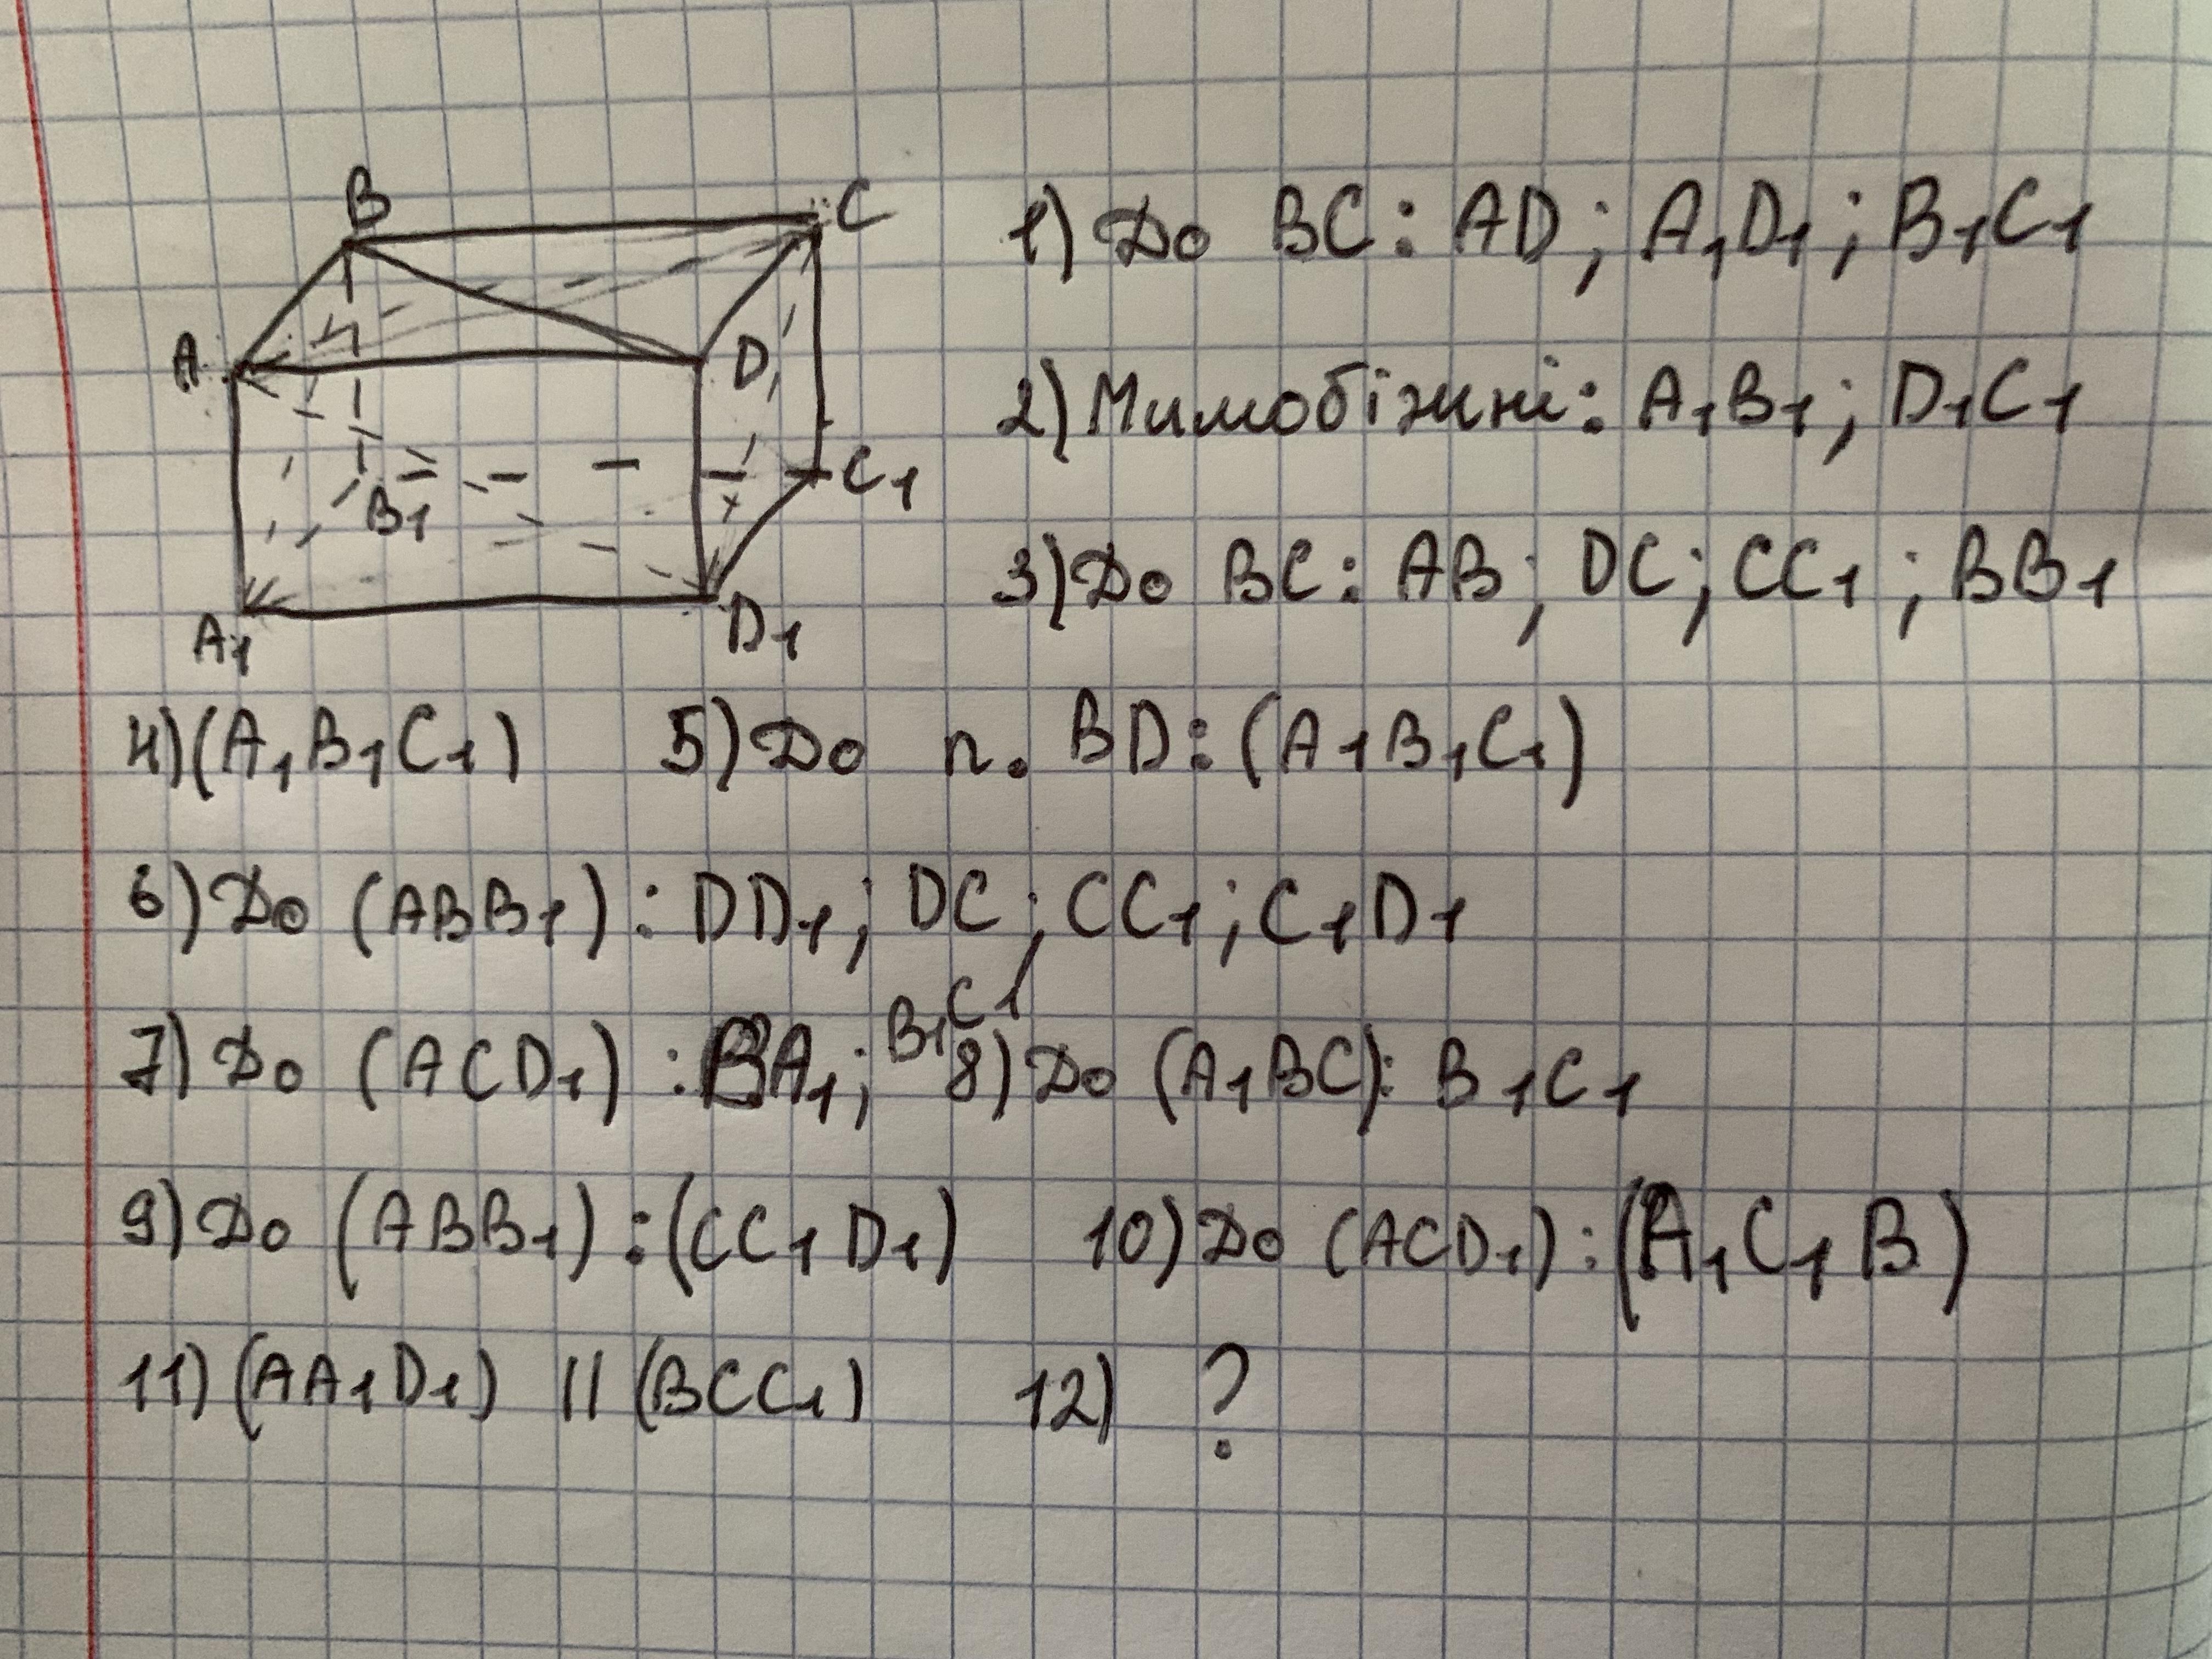 B
C
A
D
B₁
C₁
A₁
D₁
1) До BC: AD; A₁D₁; B₁C₁
2) Мимобіжні: A₁B₁; D₁C₁
3) До BC: AB; DC; CC₁; BB₁
4) (A₁B₁C₁) 5) До п. BD: (A₁B₁C₁)
6) До (ABB₁): DD₁; DC; CC₁; C₁D₁
7) До (ACD₁): BA₁; B₁C₁ 8) До (A₁BC): B₁C₁
9) До (ABB₁): (CC₁D₁) 10) До (ACD₁): (A₁C₁B)
11) (AA₁D₁) || (BCC₁) 12) ?